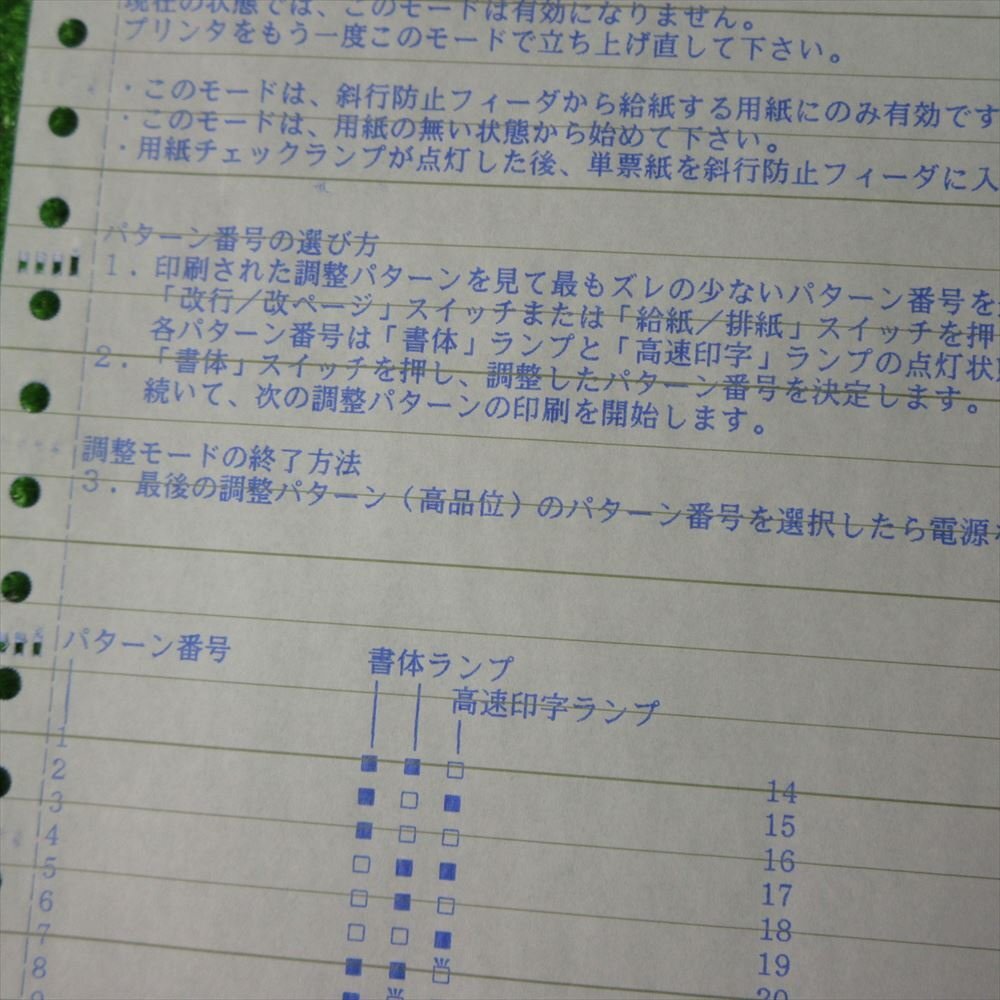 現在の状態では、このモードは有効になりません。
プリンタをもう一度このモードで立ち上げ直して下さい。
・このモードは、斜行防止フィーダから給紙する用紙にのみ有効です
・このモードは、用紙の無い状態から始めて下さい。
・用紙チェックランプが点灯した後、単票紙を斜行防止フィーダに入
パターン番号の選び方
1．印刷された調整パターンを見て最もズレの少ないパターン番号を
「改行／改ページ」スイッチまたは「給紙／排紙」スイッチを押
各パターン番号は「書体」ランプと「高速印字」ランプの点灯状
2．「書体」スイッチを押し、調整したパターン番号を決定します。
続いて、次の調整パターンの印刷を開始します。
調整モードの終了方法
3．最後の調整パターン（高品位）のパターン番号を選択したら電源
パターン番号
書体ランプ
高速印字ランプ
1
2 ■ ■ □ 14
3 ■ □ ■ 15
4 ■ □ □ 16
5 □ ■ ■ 17
6 □ ■ □ 18
7 □ □ ■ 19
8 ■ ■ □ 20
9 ■